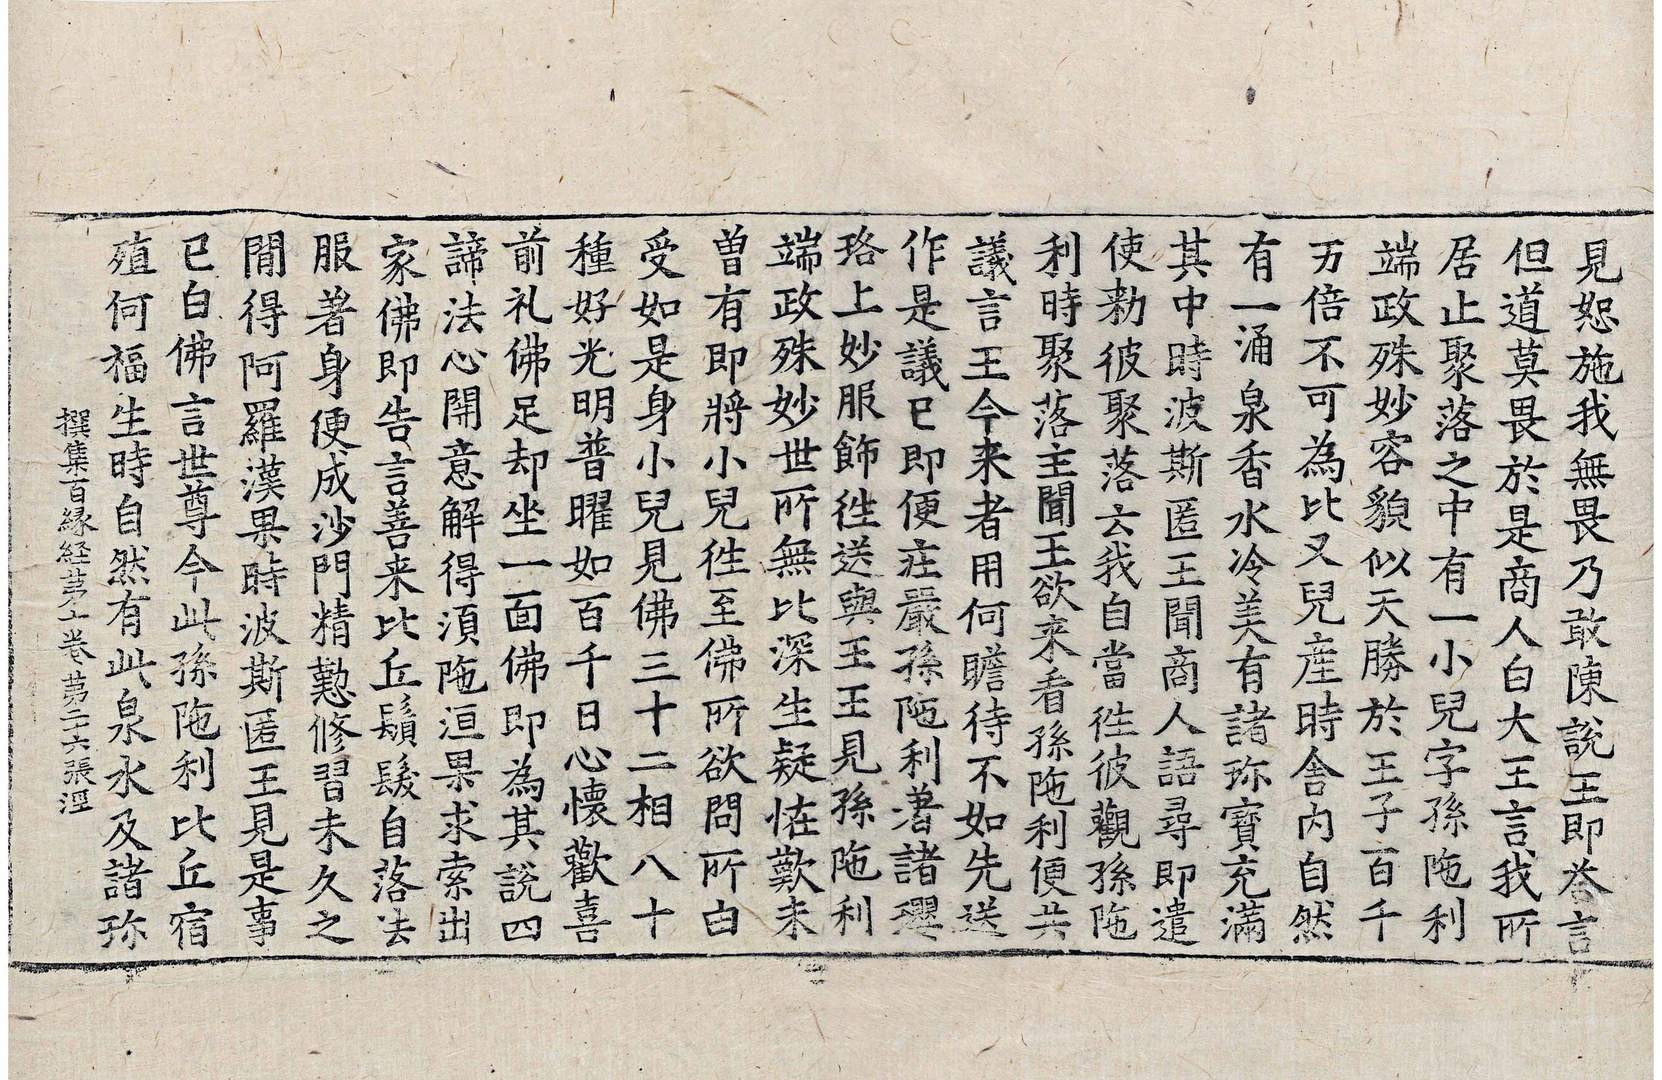 見恕施我無畏乃敢陳說王即答言
但道莫畏於是商人白大王言我所
居止聚落之中有一小兒字孫陁利
端政殊妙容貌似天勝於王子百千
万倍不可為比又兒産時舍內自然
有一涌泉香水冷美有諸珎寶充滿
其中時波斯匿王聞商人語尋即遣
使勑彼聚落云我自當徃彼觀孫陁
利時聚落主聞王欲来看孫陁利便共
議言王今来者用何瞻待不如先送
作是議已即便庄嚴孫陁利著諸瓔
珞上妙服飾徃送與王王見孫陁利
端政殊妙世所無比深生疑恠歎未
曽有即將小兒徃至佛所欲問所白
受如是身小兒見佛三十二相八十
種好光明普曜如百千日心懷歡喜
前礼佛足却坐一面佛即為其說四
諦法心開意解得湏陁洹果求索出
家佛即告言善来比丘鬚髮自落法
服著身便成沙門精懃修習未久之
閒得阿羅漢果時波斯匿王見是事
已白佛言世尊今此孫陁利比丘宿
殖何福生時自然有此泉水及諸珎
撰集百縁経苐卷苐二六張涇